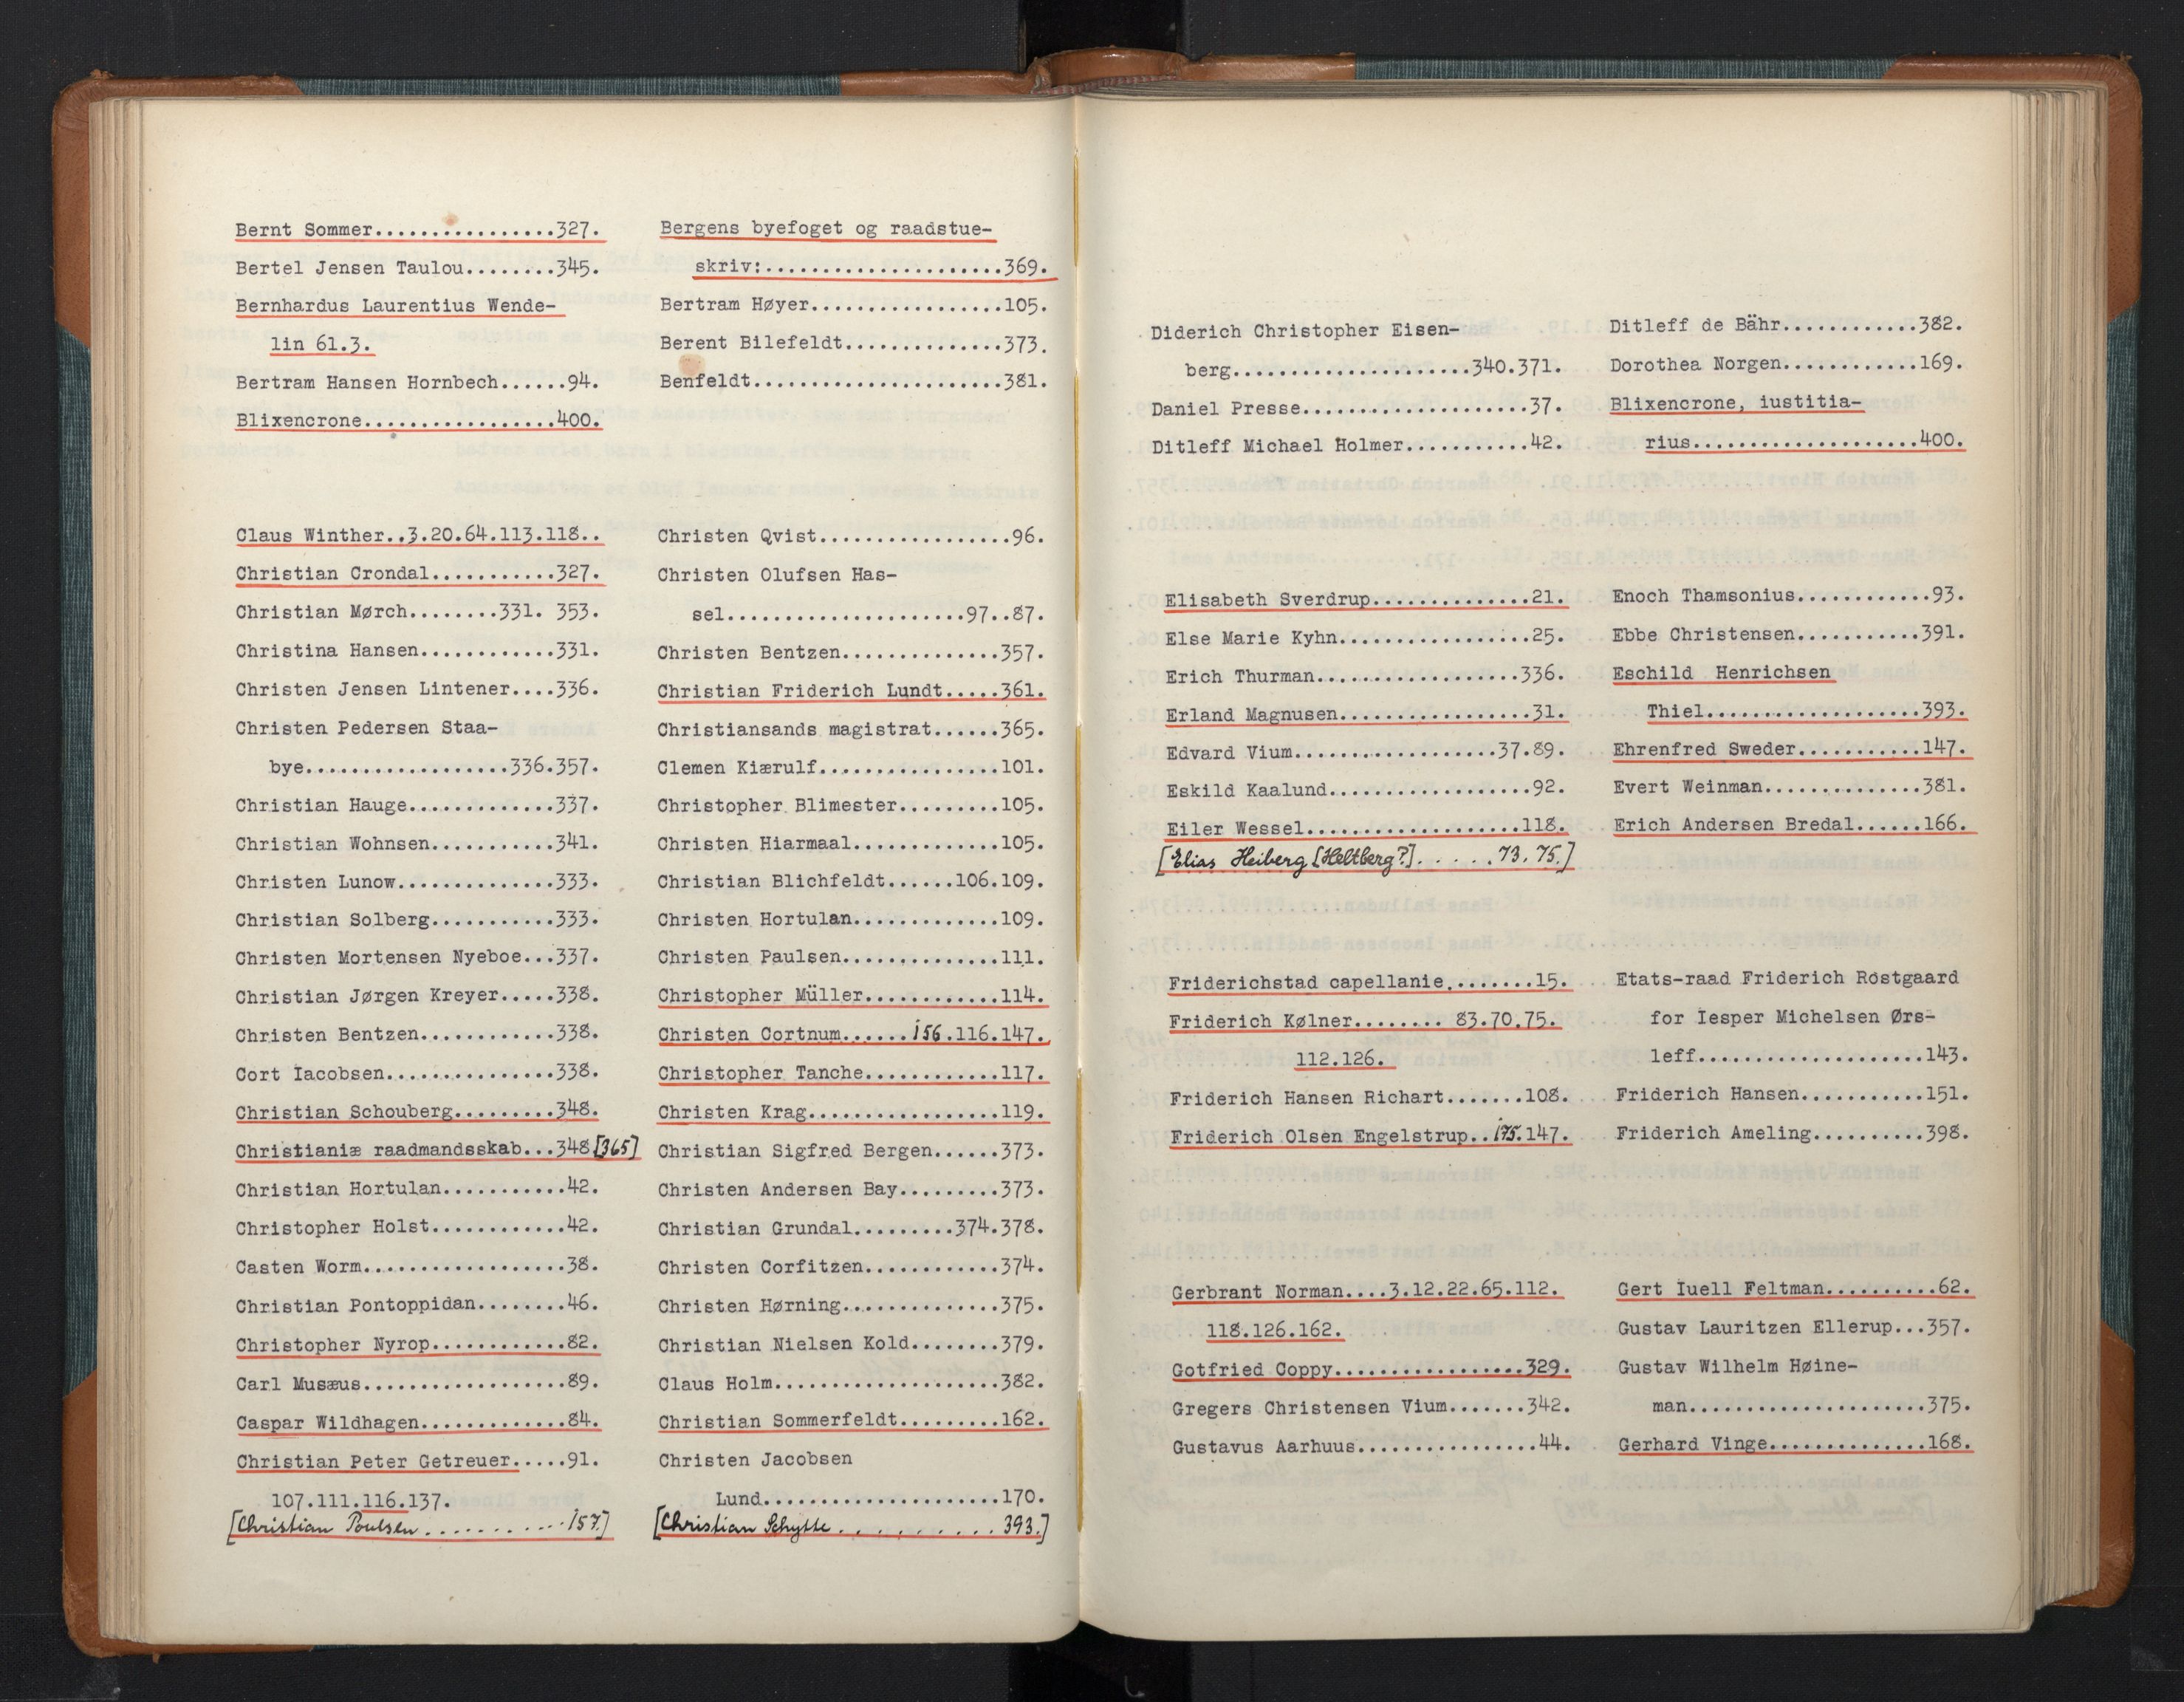 Bernt Sommer................327.
Bertel Jensen Taulou........345.
Bernhardus Laurentius Wende-
lin 61.3.
Bertram Hansen Hornbech......94.
Blixencrone.................400.
Claus Winther..3.20.64.113.118..
Christian Crondal...........327.
Christian Mørch........331. 353.
Christina Hansen............331.
Christen Jensen Lintener....336.
Christen Pedersen Staa-
bye..................336.357.
Christian Hauge.............337.
Christian Wohnsen...........341.
Christen Lunow..............333.
Christian Solberg...........333.
Christen Mortensen Nyeboe...337.
Christian Jørgen Kreyer.....338.
Christen Bentzen............338.
Cort Iacobsen...............338.
Christian Schouberg.........348.
Christianiæ raadmandsskab...348[365]
Christian Hortulan...........42.
Christopher Holst............42.
Casten Worm..................38.
Christian Pontoppidan........46.
Christopher Nyrop............82.
Carl Musæus..................89.
Caspar Wildhagen.............84.
Christian Peter Getreuer.....91.
107.111.116.137.
[Christian Poulsen..........157.]
Bergens byefoget og raadstue-
skriv:.....................369.
Bertram Høyer.................105.
Berent Bilefeldt..............373.
Benfeldt......................381.
Christen Qvist.................96.
Christen Olufsen Has-
sel.....................97..87.
Christen Bentzen..............357.
Christian Friderich Lundt.....361.
Christiansands magistrat......365.
Clemen Kiærulf................101.
Christopher Blimester.........105.
Christen Hiarmaal.............105.
Christian Blichfeldt......106.109.
Christen Hortulan.............109.
Christen Paulsen..............111.
Christopher Müller............114.
Christen Cortnum......156.116.147.
Christopher Tanche............117.
Christen Krag.................119.
Christian Sigfred Bergen......373.
Christen Andersen Bay.........373.
Christian Grundal.........374.378.
Christen Corfitzen............374.
Christen Hørning..............375.
Christian Nielsen Kold........379.
Claus Holm....................382.
Christian Sommerfeldt.........162.
Christen Jacobsen
Lund.....................170.
[Christian Schytte..........393.]
Diderich Christopher Eisen-
berg.....................340.371.
Daniel Presse....................37.
Ditleff Michael Holmer...........42.
Elisabeth Sverdrup..............21.
Else Marie Kyhn.................25.
Erich Thurman..................336.
Erland Magnusen.................31.
Edvard Vium..................37.89.
Eskild Kaalund..................92.
Eiler Wessel...................118.
[Elias Heiberg [Heltberg?]......73.75.]
Friderichstad capellanie........15.
Friderich Kølner........ 83.70.75.
112.126.
Friderich Hansen Richart.......108.
Friderich Olsen Engelstrup..175.147.
Gerbrant Norman....3.12.22.65.112.
118.126.162.
Gotfried Coppy.................329.
Gregers Christensen Vium.......342.
Gustavus Aarhuus................44.
Ditleff de Bähr............382.
Dorothea Norgen............169.
Blixencrone, iustitia-
rius....................400.
Enoch Thamsonius............93.
Ebbe Christensen...........391.
Eschild Henrichsen
Thiel...................393.
Ehrenfred Sweder...........147.
Evert Weinman..............381.
Erich Andersen Bredal......166.
Etats-raad Friderich Rostgaard
for Iesper Michelsen Ørs-
leff....................143.
Friderich Hansen...........151.
Friderich Ameling..........398.
Gert Iuell Feltman..........62.
Gustav Lauritzen Ellerup...357.
Gustav Wilhelm Høine-
man.....................375.
Gerhard Vinge..............168.